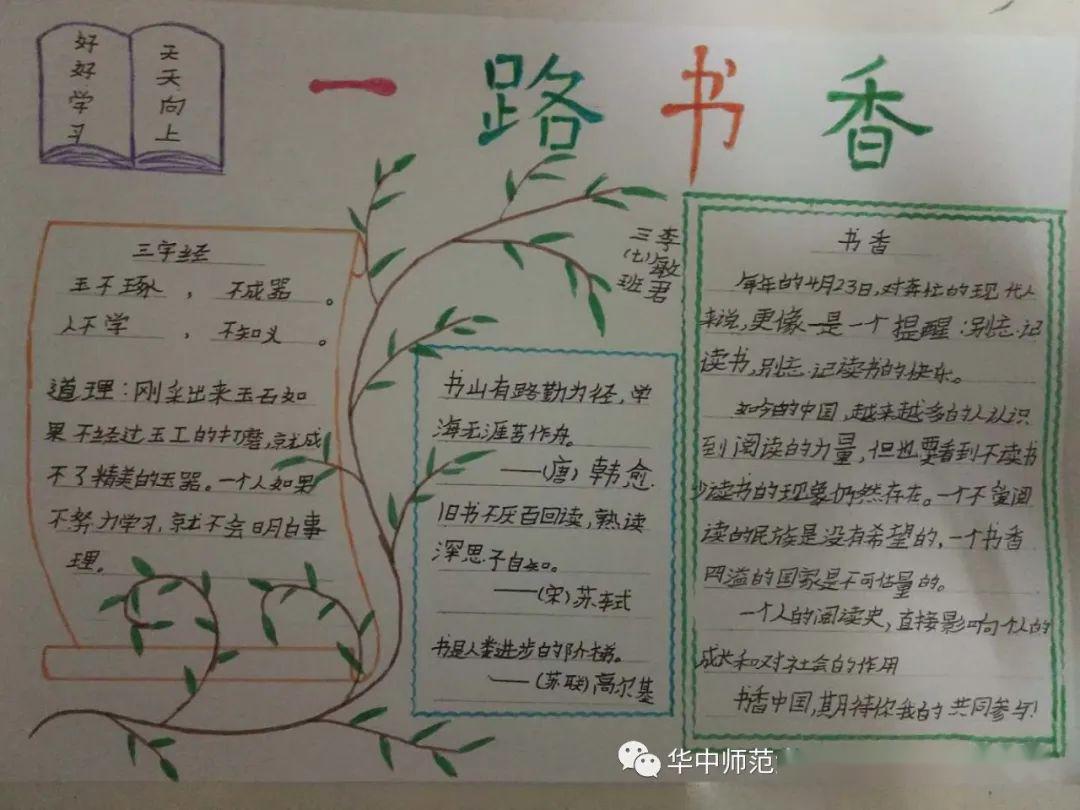 好好学习
天天向上
一路书香
李敏君
三(七)班
三字经
玉不琢，不成器。
人不学，不知义。
道理：刚采出来玉石如
果不经过玉工的打磨，就成
不了精美的玉器。一个人如果
不努力学习，就不会明白事
理。
书山有路勤为径，学
海无涯苦作舟。
——(唐)韩愈
旧书不厌百回读，熟读
深思子自知。
——(宋)苏轼
书是人类进步的阶梯。
——(苏联)高尔基
书香
每年的4月23日，对奔忙的现代人
来说，更像一是一个提醒：别忘记
读书，别忘记读书的快乐。
如今的中国，越来越多的人认识
到阅读的力量，但也要看到不读书
少读书的现象仍然存在。一个不阅
读的民族是没有希望的，一个书香
四溢的国家是不可估量的。
一个人的阅读史，直接影响个人的
成长和对社会的作用
书香中国，期待你我的共同参与！
华中师范